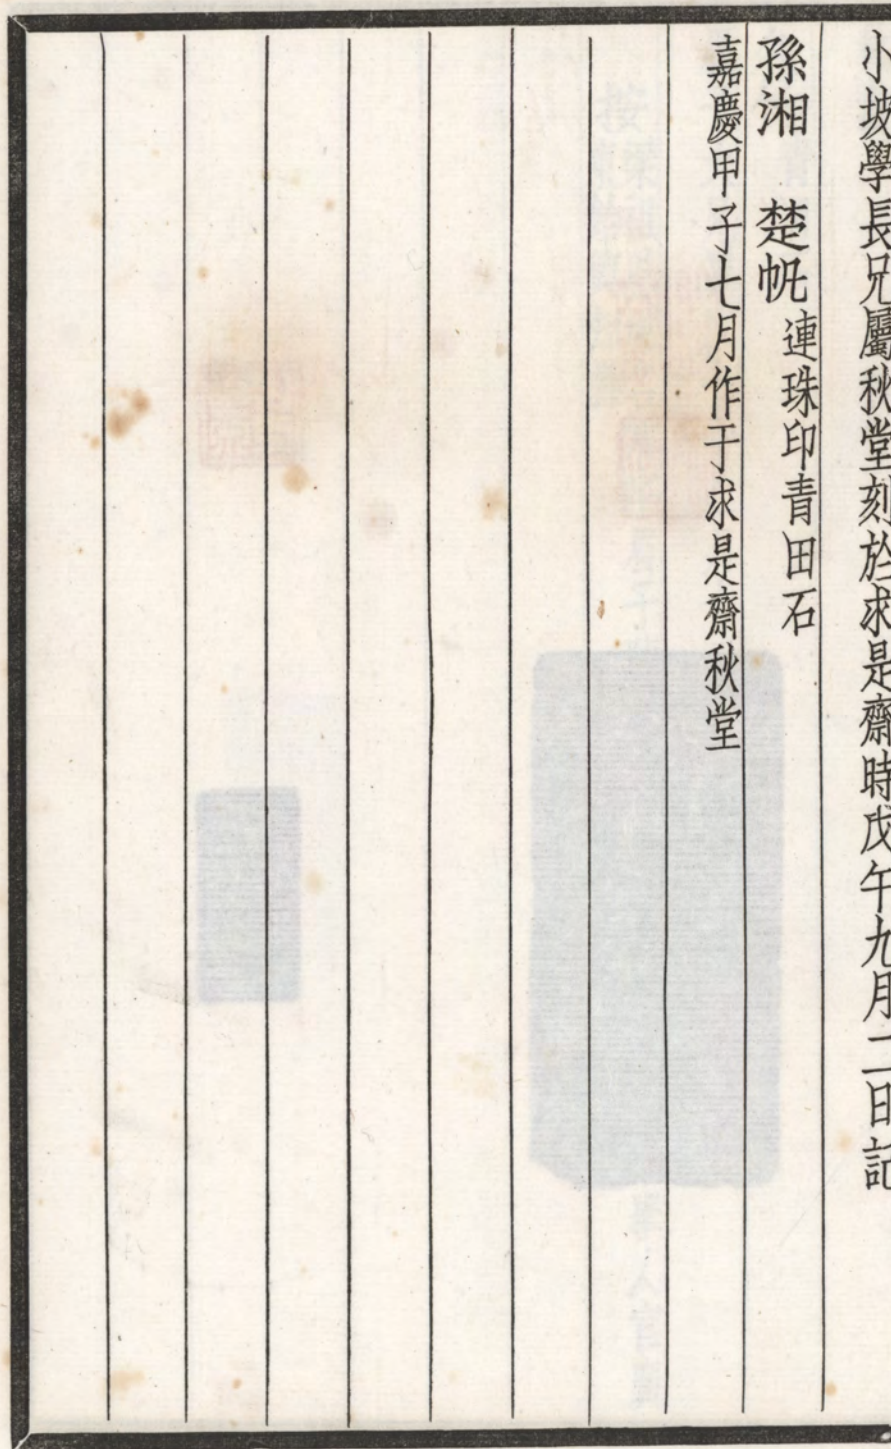 小坡學長兄屬秋堂刻於求是齋時戊午九月二日記
孫湘　楚帆　連珠印青田石
嘉慶甲子七月作于求是齋秋堂